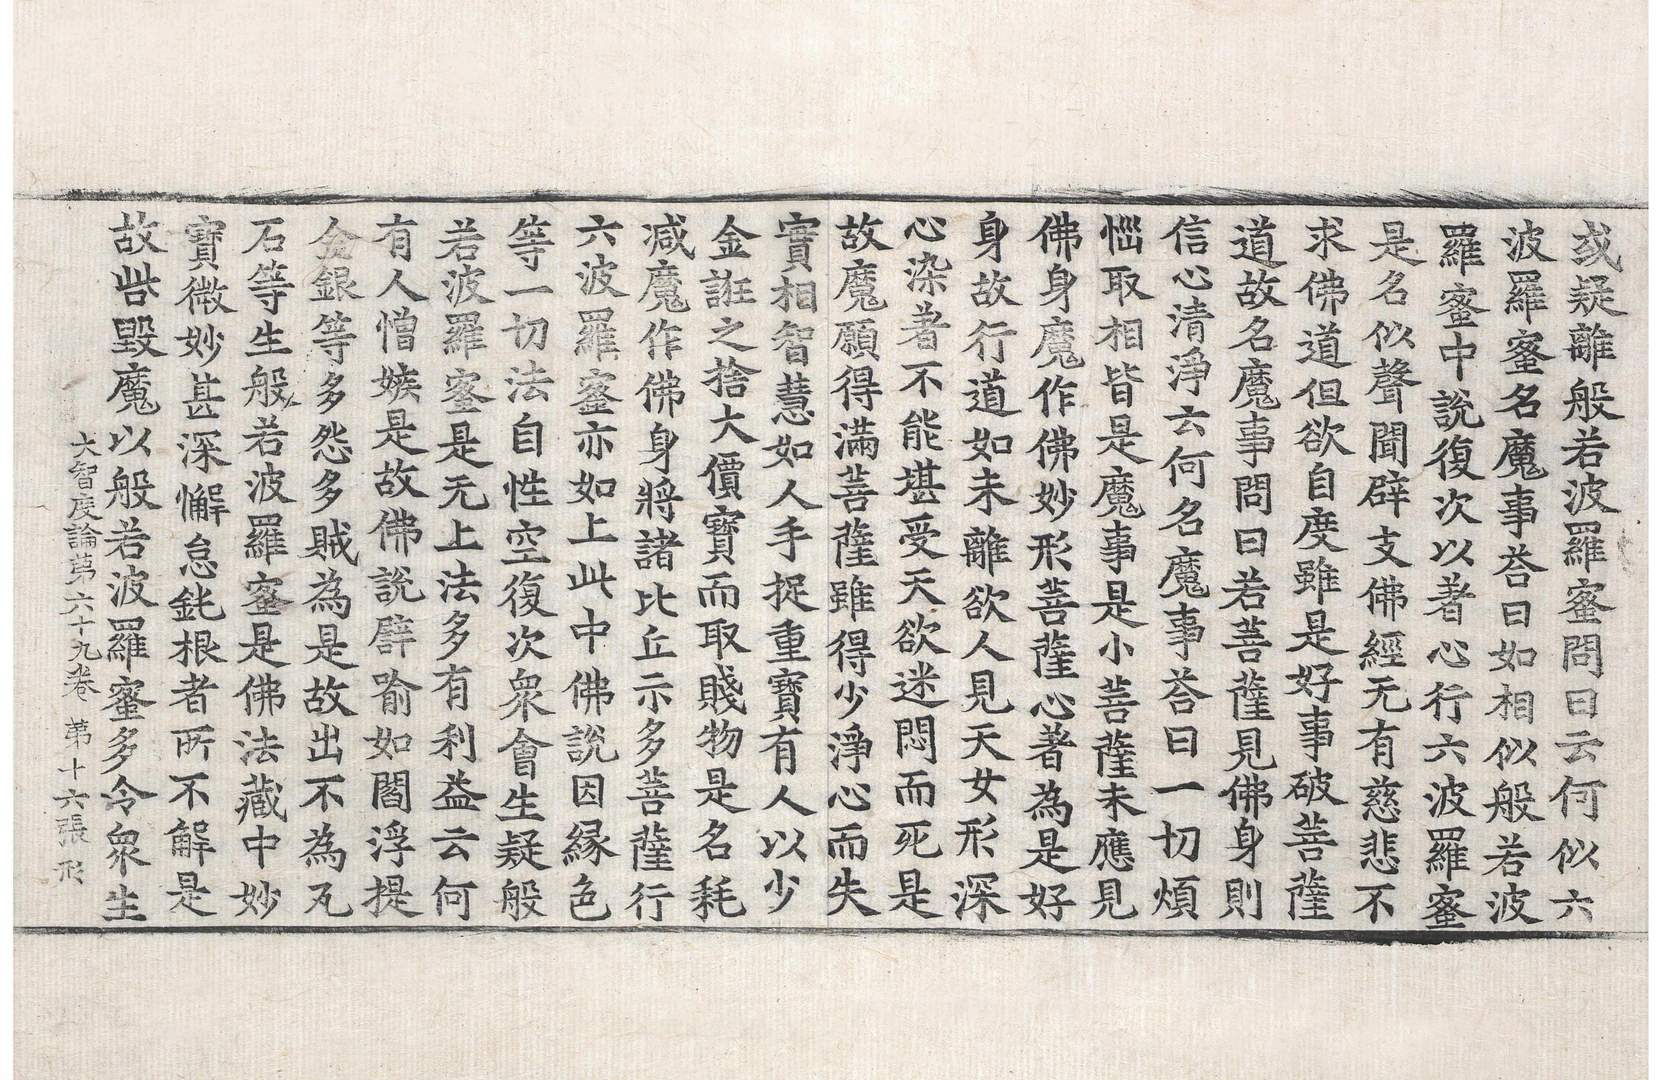 或疑離般若波羅蜜問曰云何似六
波羅蜜名魔事荅曰如相似般若波
羅蜜中說復次以著心行六波羅蜜
是名似聲聞辟支佛經无有慈悲不
求佛道但欲自度雖是好事破菩薩
道故名魔事問曰若菩薩見佛身則
信心清淨云何名魔事荅曰一切煩
惱取相皆是魔事是小菩薩未應見
佛身魔作佛妙形菩薩心著為是好
身故行道如未離欲人見天女形深
心染著不能堪受天欲迷悶而死是
故魔願得滿菩薩雖得少淨心而失
實相智慧如人手捉重寶有人以少
金誑之捨大價寶而取賤物是名耗
減魔作佛身將諸比丘示多菩薩行
六波羅蜜亦如上此中佛說因縁色
等一切法自性空復次衆會生疑般
若波羅蜜是无上法多有利益云何
有人憎嫉是故佛說譬喻如閻浮提
金銀等多怨多賊為是故出不為瓦
石等生般若波羅蜜是佛法藏中妙
寶微妙甚深懈怠鈍根者所不解是
故呰毀魔以般若波羅蜜多令衆生
大智度論第六十九卷 第十六張 形